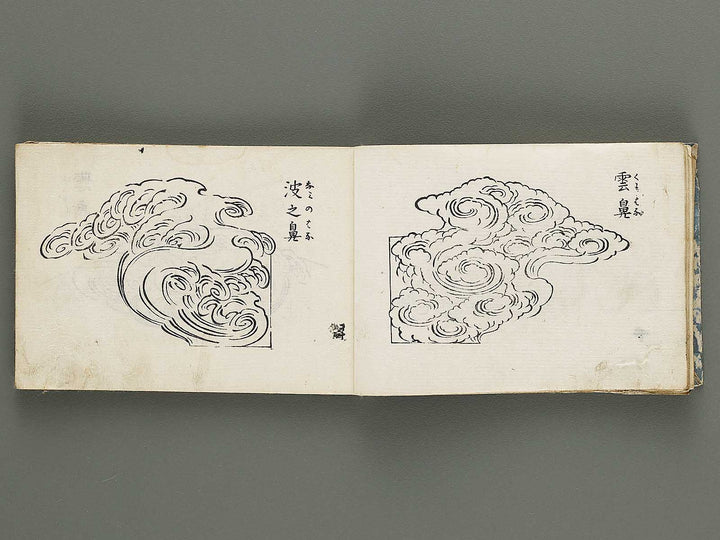 雲鼻
くもはな
波之鼻
なみのはな